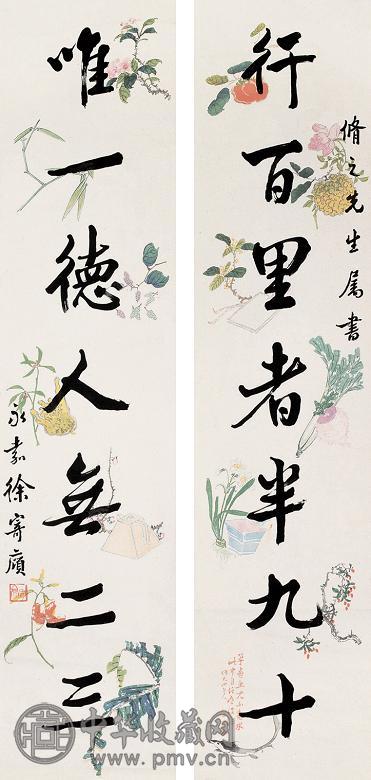 脩之先生属書
行百里者半九十
唯一德人無二三
永嘉徐寄廎
中华收藏网
www.pmv.cn